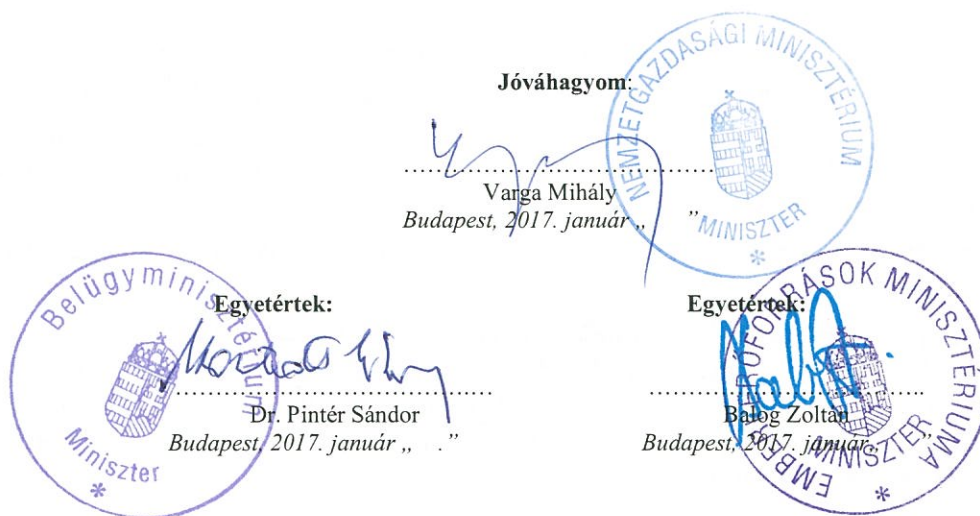 Jóváhagyom:
NEMZETGAZDASÁGI MINISZTÉRIUM
MINISZTER
*
Varga Mihály
Budapest, 2017. január „ ”
Belügyminisztérium
Miniszter
*
Egyetértek:
Dr. Pintér Sándor
Budapest, 2017. január „ . ”
Egyetértek:
EMBERI ERŐFORRÁSOK MINISZTÉRIUMA
MINISZTER
*
Balog Zoltán
Budapest, 2017. január „ ”